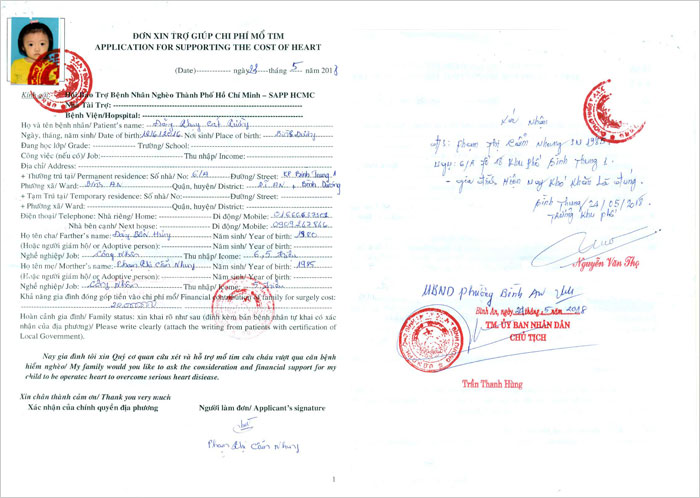 ĐƠN XIN TRỢ GIÚP CHI PHÍ MỔ TIM
APPLICATION FOR SUPPORTING THE COST OF HEART
(Date)------------ ngày 22 ----tháng 5 -- năm 2018
Kính gửi: Hội Bảo Trợ Bệnh Nhân Nghèo Thành Phố Hồ Chí Minh – SAPP HCMC
Nhà Tài Trợ:
Bệnh Viện/Hopspital:
Họ và tên bệnh nhân/ Patient's name: Đặng Thuỵ Cát
Ngày, tháng, năm sinh/ Date of birth: 18/6/2016 Nơi sinh/ Place of birth: Bình Dương
Đang học lớp/ Grade: Trường/ School:
Công việc (nếu có)/ Job: Thu nhập/ Income:
Địa chỉ/ Address:
+ Thường trú tại/ Permanent residence: Số nhà/ No: 6/A Đường/ Street: KP Bình Thung 1
Phường xã/ Ward: Bình An Quận, huyện/ District: Dĩ An, Bình Dương
+ Tạm Trú tại/ Temporary residence: Số nhà/ No: Đường/ Street:
+ Phường xã/ Ward: Quận, huyện/ District:
Điện thoại/ Telephone: Nhà riêng/ Home: Di động/ Mobile:
Nhà bên cạnh/ Next house: Di động/ Mobile:
Họ tên cha/ Farther's name: Đặng Bốn Hùng Năm sinh/ Year of birth: 1980
(Hoặc người giám hộ/ or Adoptive person): Năm sinh/ Year of birth:
Nghề nghiệp/ Job: Công Nhân Thu nhập/ Icome: 6,5 triệu
Họ tên mẹ/ Morther's name: Phạm Thị Cẩm Nhung Năm sinh/ Year of birth: 1985
(Hoặc người giám hộ/ or Adoptive person): Năm sinh/ Year of birth:
Nghề nghiệp/ Job: Công Nhân Thu nhập/ Icome: 5 triệu
Khả năng gia đình đóng góp tiền vào chi phí mổ/ Financial contribution of family for surgely cost:
20.000.000
Hoàn cảnh gia đình/ Family status: xin khai rõ như sau (đính kèm bản bệnh nhân tự khai có xác
nhận của địa phương)/ Please write clearly (attach the writing from patients with certification of
Local Government).
Nay gia đình tôi xin Quý cơ quan cứu xét và hỗ trợ mổ tim cứu cháu vượt qua căn bệnh
hiểm nghèo/ My family would you like to ask the consideration and financial support for my
child to be operatec heart to overcome serious heart disease.
Xin chân thành cảm ơn/ Thank you very much
Xác nhận của chính quyền địa phương Người làm đơn/ Applicant's signature
Phạm Thị Cẩm Nhung
1
Xác Nhận
Phạm Thị Cẩm Nhung SN 1985
Ngụ: 6/A tổ Khu phố Bình Thung 1
- gia đình Hiện Nay Khó Khăn là đúng.
Bình Thung / 24 / 05 / 2018
Trưởng Khu phố
Nguyễn Văn Thọ
UBND Phường Bình An
Bình An, ngày tháng 5 năm 2018
TM. ỦY BAN NHÂN DÂN
CHỦ TỊCH
Trần Thanh Hùng